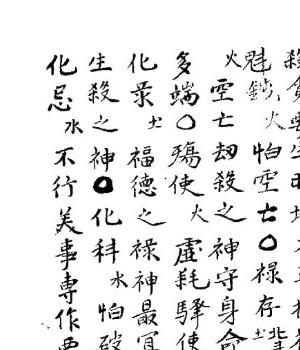 魁鉞火怕空亡〇祿存土北
火空亡劫殺之神守身命
多端〇殤使火虛耗驛使
化彔土福德之祿神最宜
生殺之神〇化科水怕破
化忌水不行美事專作